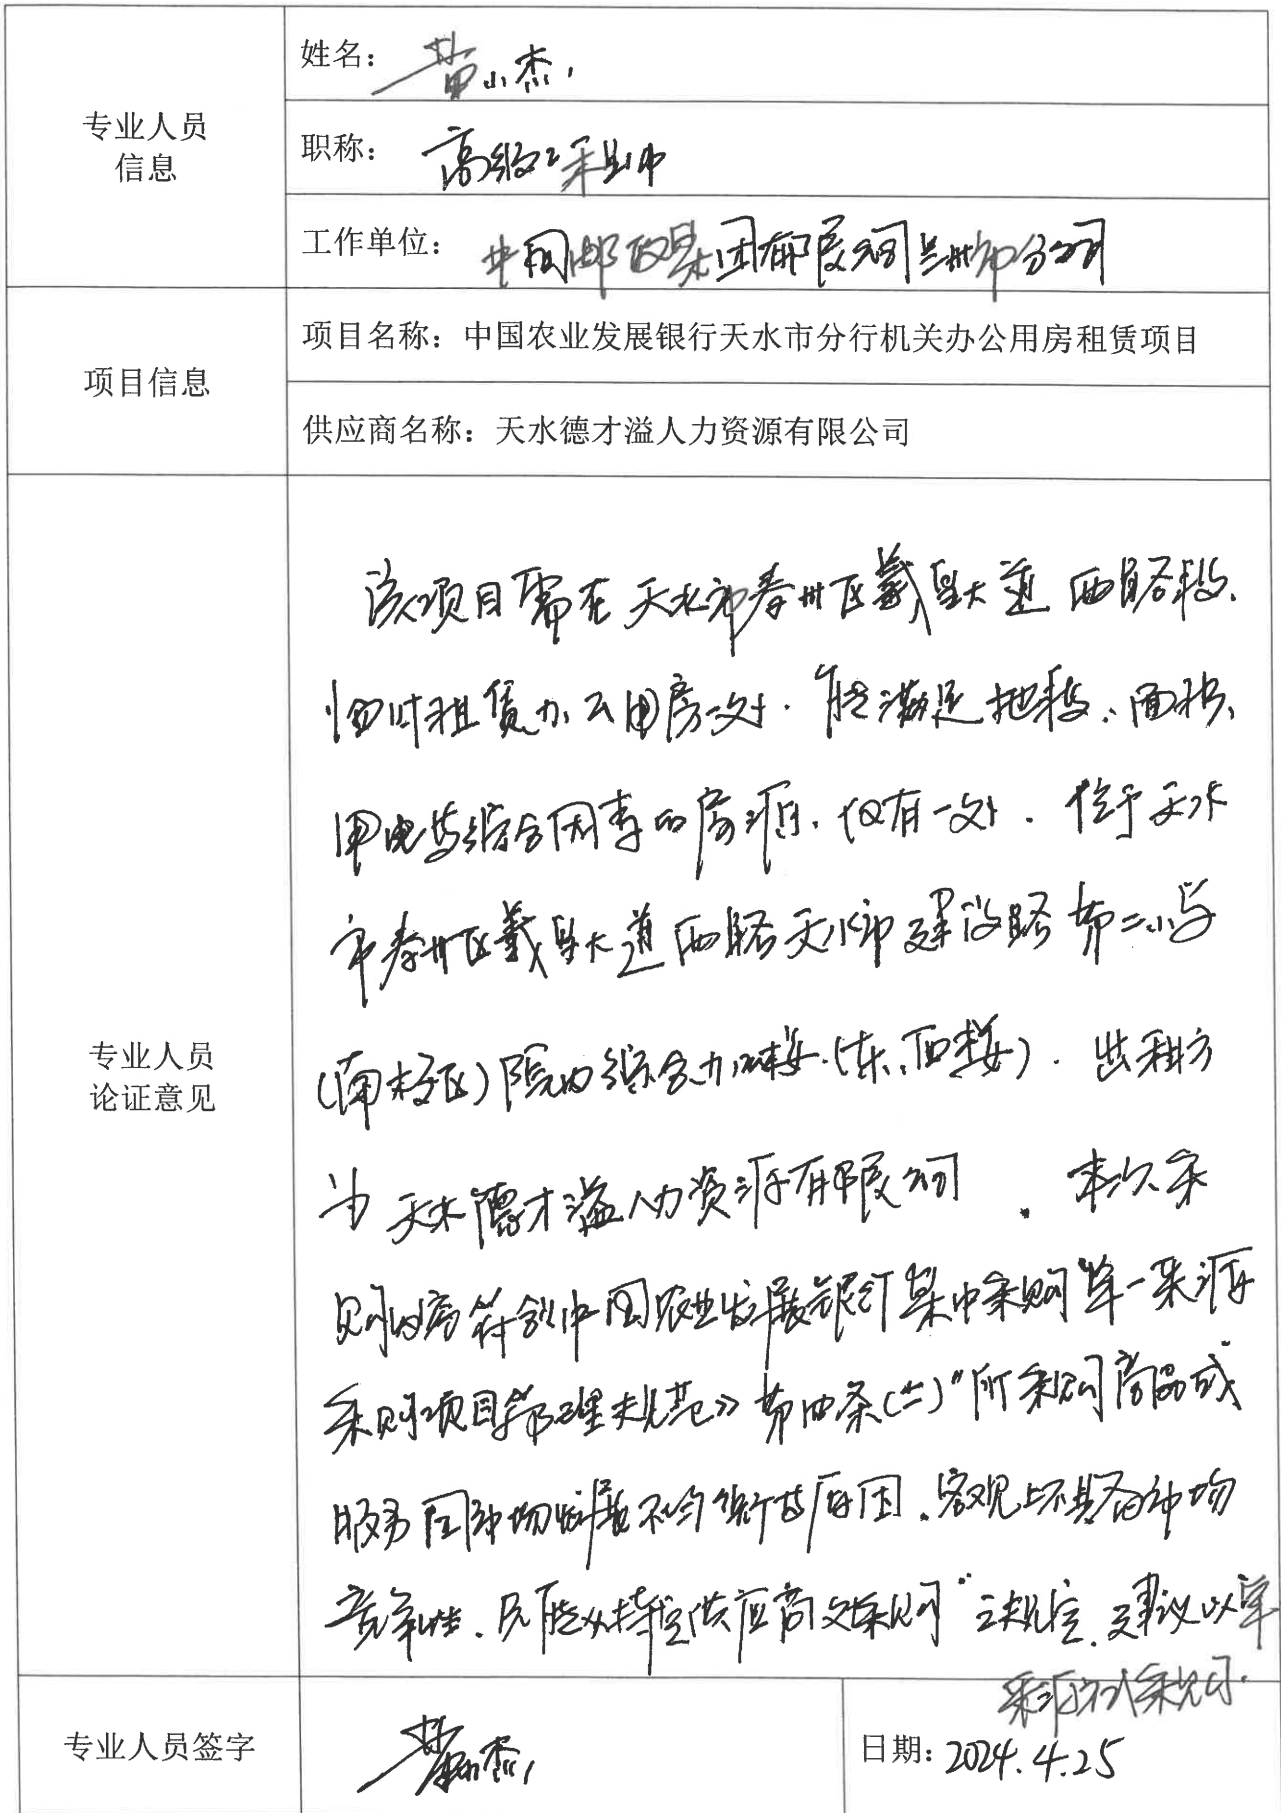 专业人员
信息
姓名：黄小杰
职称：高级采购师
工作单位：中国邮政集团有限公司兰州市分公司
项目信息
项目名称：中国农业发展银行天水市分行机关办公用房租赁项目
供应商名称：天水德才溢人力资源有限公司
专业人员
论证意见
该项目需在天水市秦州区羲皇大道西路段、
临时租赁办公用房一处．能满足地段、面积、
用电等综合因素的房源，仅有一处．位于天水
市秦州区羲皇大道西路天水市建设路第二小学
（南校区）院内综合办公楼．（东、西楼）．出租方
为天水德才溢人力资源有限公司．本次采
购内容符合《中国农业发展银行集中采购单一来源
采购项目管理规范》第四条（二）“所采购商品或
服务因市场发展不均衡等原因，客观上不具备市场
竞争性，只能从特定供应商处采购”之规定，建议以单一
来源方式采购．
专业人员签字
黄小杰
日期：2024.4.25